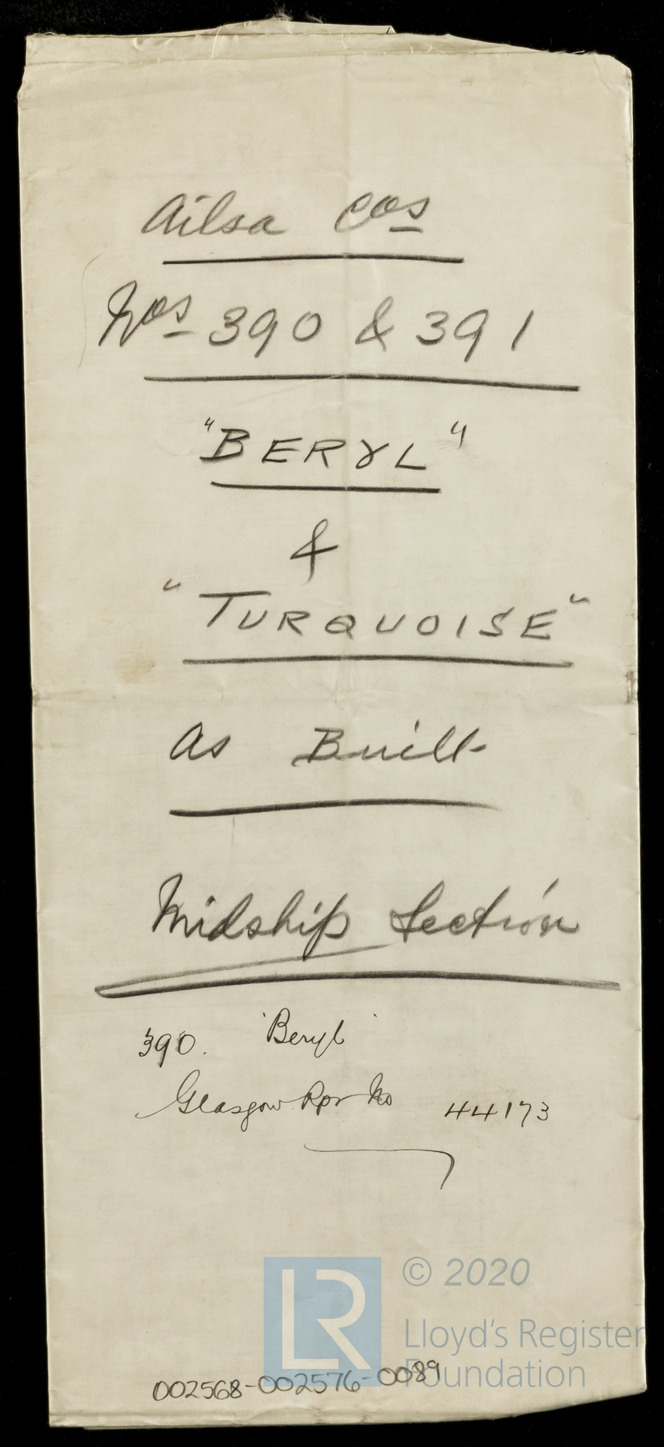 Ailsa Cos
Nos 390 & 391
"BERYL"
&
"TURQUOISE"
As Built
Midship Section
390. 'Beryl'
Glasgow Rpr No 44173
LR
© 2020
Lloyd's Register
Foundation
002568-002576-0089